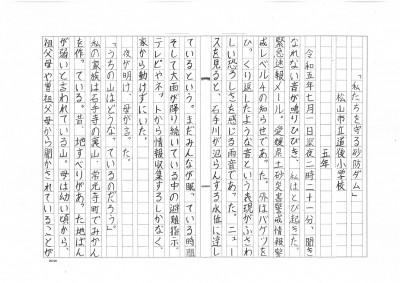 「私たちを守る砂防ダム」
松山市立道後小学校
五年
令和五年七月一日深夜二時二十一分、聞き
なれない音が鳴りひびき、私はとび起きた。
緊急速報メール。愛媛県土砂災害警戒情報警
戒レベル4の知らせであった。外はバケツを
ひっくり返したような音という表現がふさわ
しい恐ろしさを感じる雨音であった。ニュー
スを見ると、石手川が氾らんする水位に達し
ているという。まだみんなが眠っている時間
そして大雨が降り続いている中の避難指示。
テレビやネットから情報収集するしかなく、
家から動けずにいた。
夜が明け、母が言った。
「うちの山はどうなっているのだろう。」
私の家族は石手寺の裏山、常光寺町でみかん
を作っている。昔、地すべりがあった地ばん
が弱いと言われている山。母は幼い頃から、
祖父母や曽祖父母から聞かされていることが